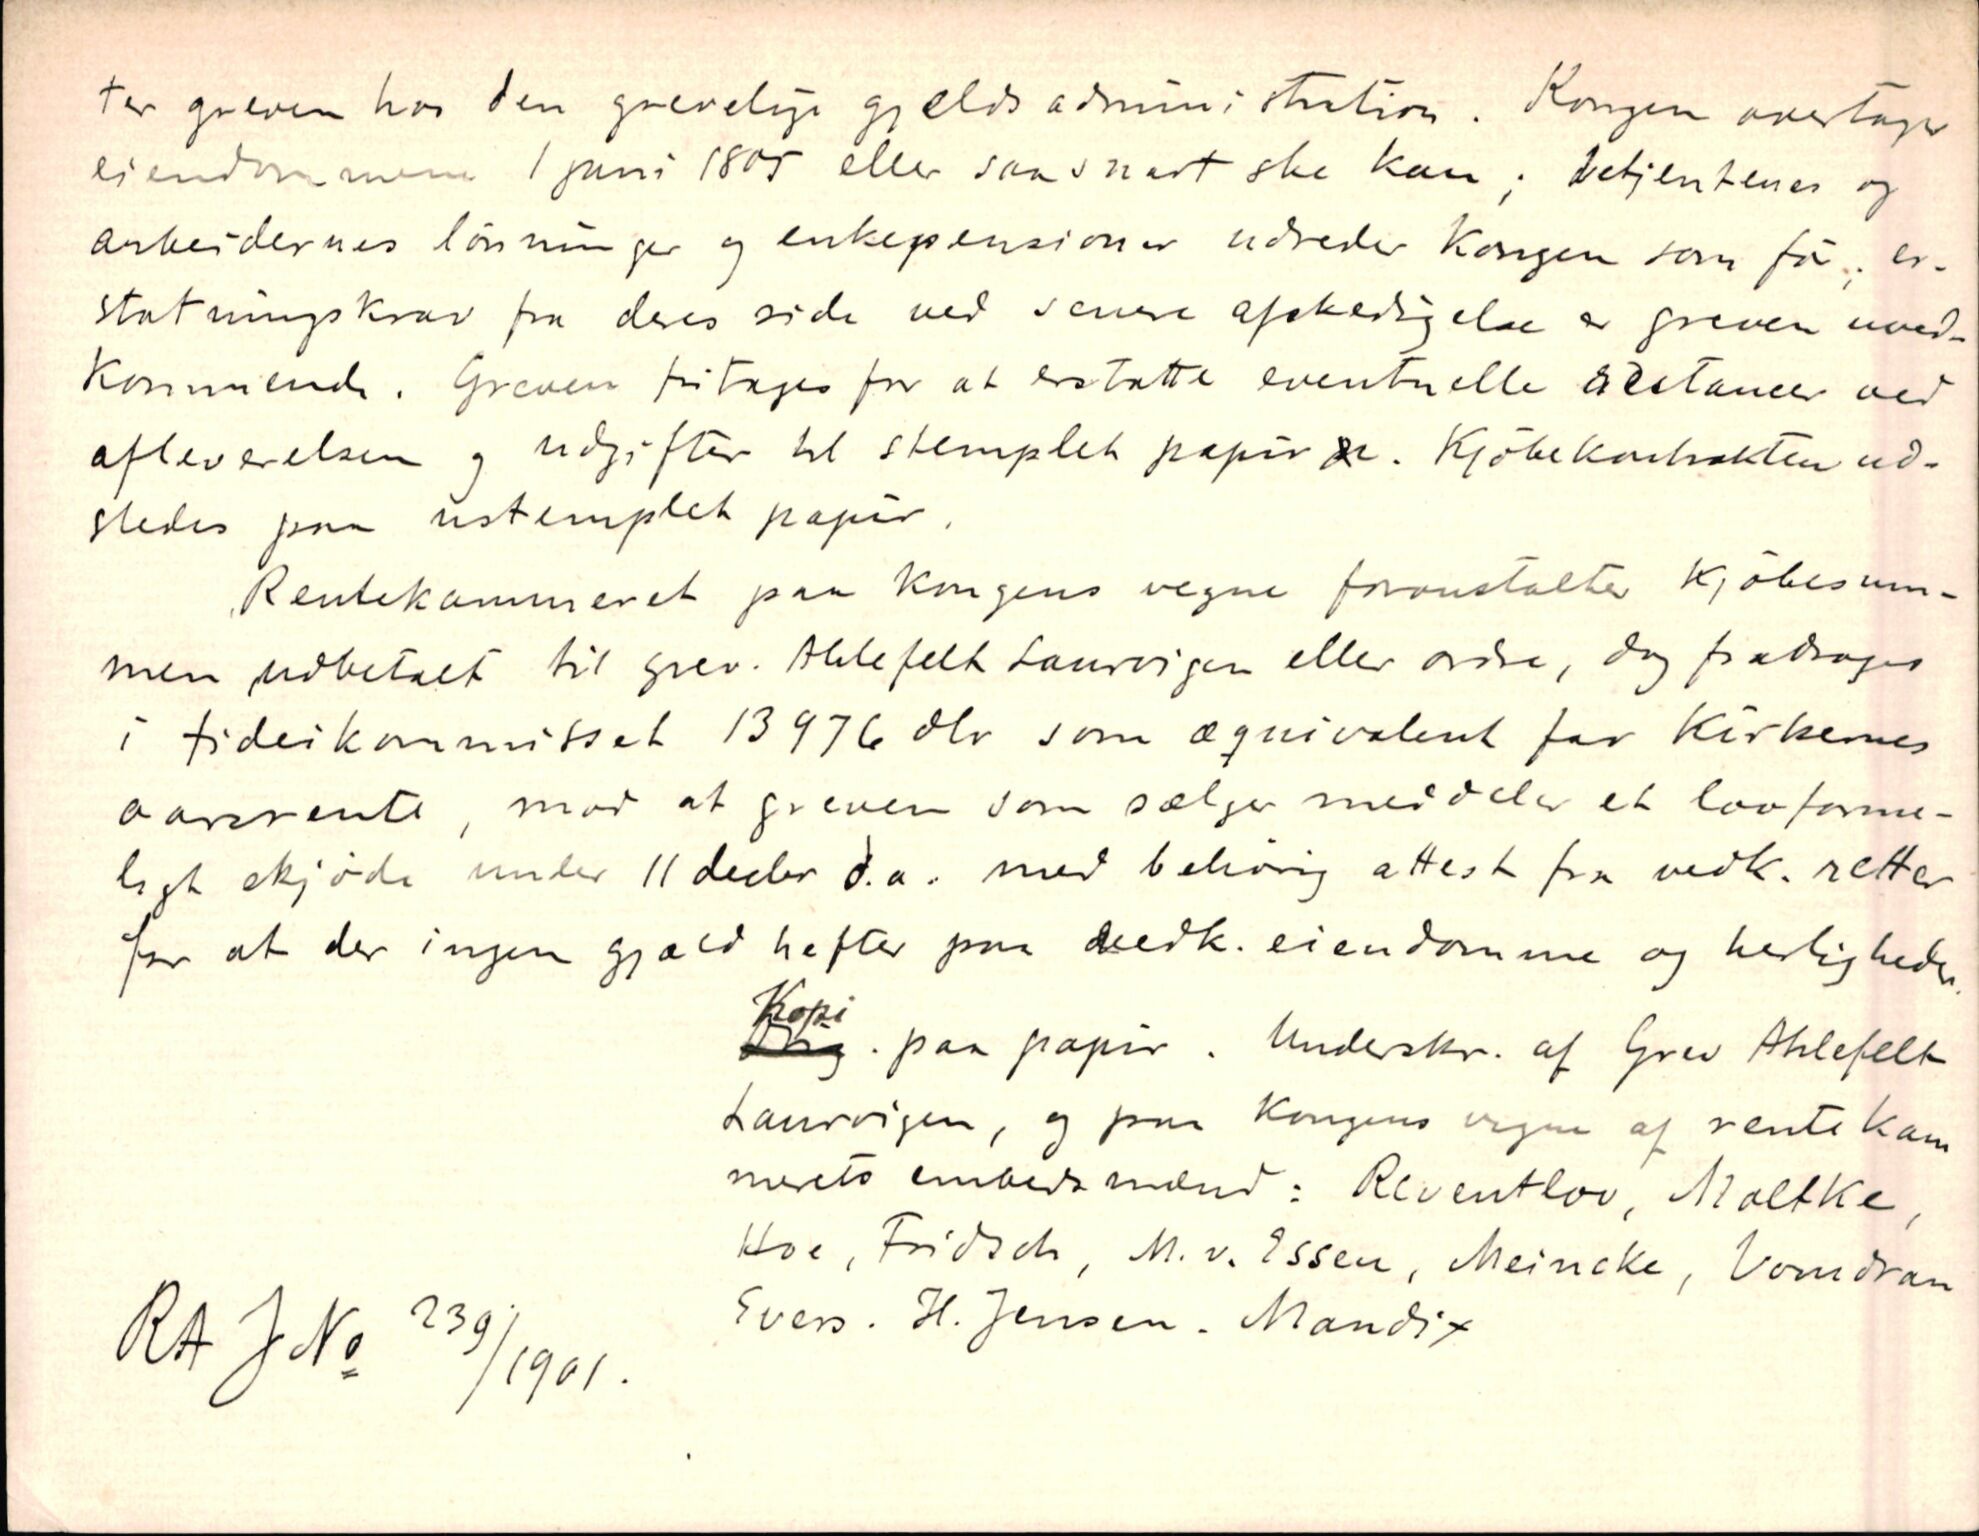 ter greven hos den grevelige gjældsadministration. Kongen overtager
eiendommene 1 juni 1805 eller saasnart ske kan; betjentenes og
arbeidernes lönninger og enkepensioner udreder kongen som för; er-
statningskrav fra deres side ved senere afskedigelse er greven uved-
kommende. Greven fritages for at erstatte eventuelle restancer ved
afleverelsen og udgifter til stemplet papir. Kjöbekontrakten ud-
stedes paa ustemplet papir.
Rentekammeret paa kongens vegne foranstalter kjöbesum-
men udbetalt til grev. Ahlefelt Laurvigen eller ordre, dog fradrages
i fideikommisset 13976 dlr som æquivalent for kirkernes
aarsrente, mod at greven som sælger meddeler et lovforme-
ligt skjöde under 11 decbr d.a. med behörig attest fra vedk. retter
for at der ingen gjæld hefter paa vedk. eiendomme og herligheder.
Kopi
Orig. paa papir. Underskr. af Grev Ahlefelt
Laurvigen, og paa kongens vegne af rentekam
merets embedsmænd: Reventlov, Moltke,
Hoe, Fridsch, M. v. Essen, Meincke, Vomdran
Evers. H. Jensen. Mandix
RA J No 239/1901.